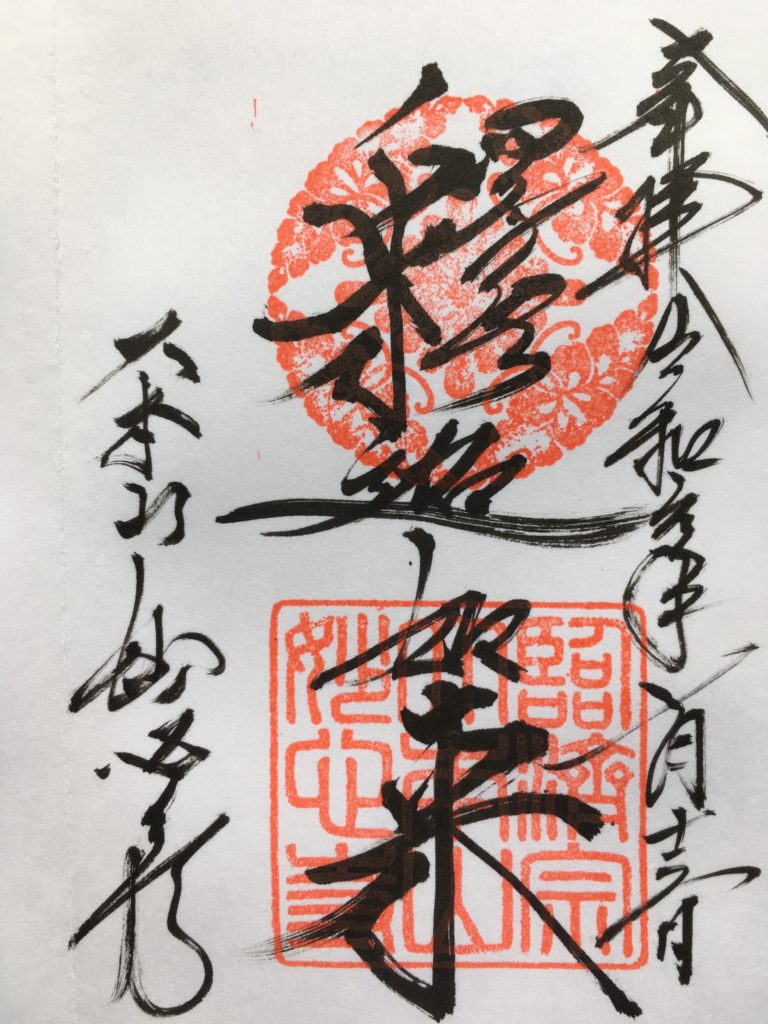 奉拝 令和 年 月 日
釋迦如来
大本山 妙心寺
臨濟宗
大本山
妙心寺